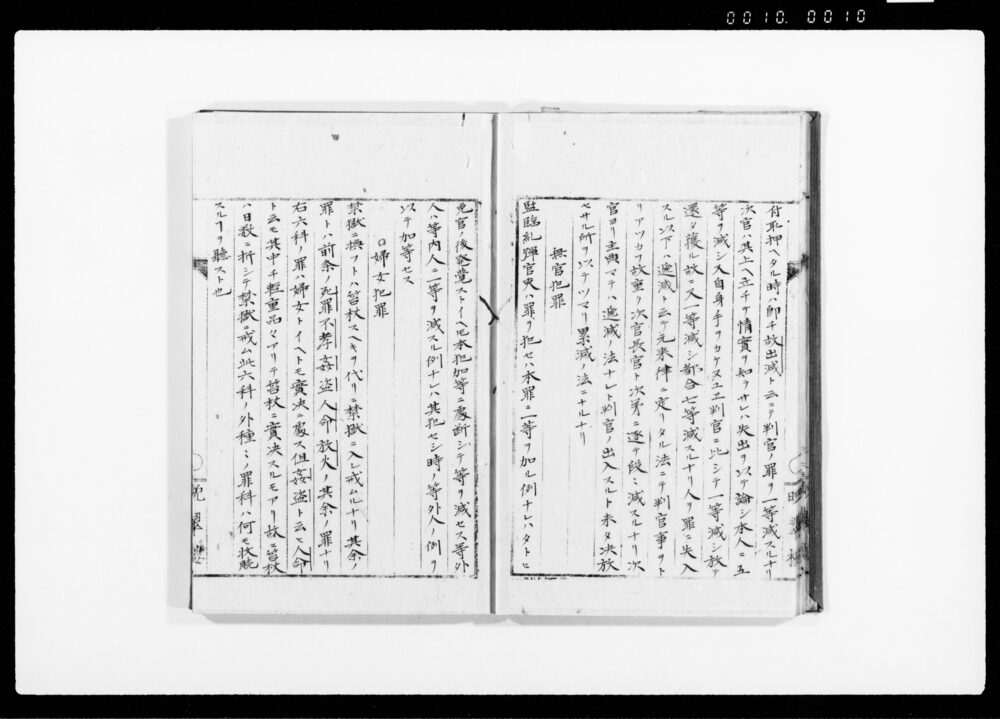 0010.0010
付取押ヘタル時ハ即チ故出減ト云ニテ判官ノ罪ヲ一等減スルナリ
次官ハ其上ヘ立チテ情實ヲ知ラサレハ失出ヲ以テ論シ本人ニ五
等ヲ減シ又自身手ヲカケヌユヱ判官ニ比シテ一等減シ放テ
還タ獲ル故ニ又一等減シ都合七等減スルナリ人ヲ罪ニ失入
スル以下ハ逓減ト云テ元来律ニ定リタル法ニテ判官事ヲト
リアツカフ故重ク次官長官ト次第ニ逐テ段〻減スルナリ次
官ヨリ主典マテハ逓減ノ法ナレト判官ノ出入スルト未タ决放
セサル所ヲ以テツマリ累減ノ法ニナルナリ
無官犯罪
監臨糺弾官吏ハ罪ヲ犯セハ本罪ニ一等ヲ加ル例ナレハタトヒ
免官ノ後発覚ストイヘ𪜈本犯加等ニ處断シテ等ヲ減セス等外
人ハ等内人ニ一等ヲ減スル例ナレハ其犯セシ時ノ等外人ノ例ヲ
以テ加等セス
婦女犯罪
禁獄ニ換フトハ笞杖スヘキヲ代リニ禁獄ニ入レ戒ムルナリ其余ノ
罪トハ前余ノ死罪不孝姦盗人命放火ノ其余ノ罪ナリ
右六科ノ罪ハ婦女トイヘトモ實决ニ處ス但姦盗ト云ヒ人命
ト云モ其中チ軽重品々アリテ笞杖ニ實决スルモアリ故ニ笞杖
ハ日数ニ折シテ禁獄ニ戒ム此六科ノ外種〻ノ罪科ハ何モ收贖
スルヿヲ聽スト也